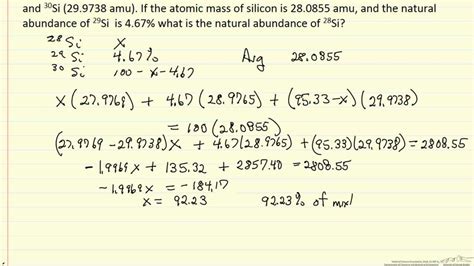 and ³⁰Si (29.9738 amu). If the atomic mass of silicon is 28.0855 amu, and the natural
abundance of ²⁹Si is 4.67% what is the natural abundance of ²⁸Si?
²⁸Si x
²⁹Si 4.67% Avg 28.0855
³⁰Si 100-x-4.67
x(27.9769) + 4.67(28.9765) + (95.33-x)(29.9738)
= 100(28.0855)
(27.9769-29.9738)x + 4.67(28.9765) + (95.33)(29.9738) = 2808.55
-1.9969x + 135.32 + 2857.40 = 2808.55
-1.9969x = -184.17
x = 92.23 92.23% of mxl